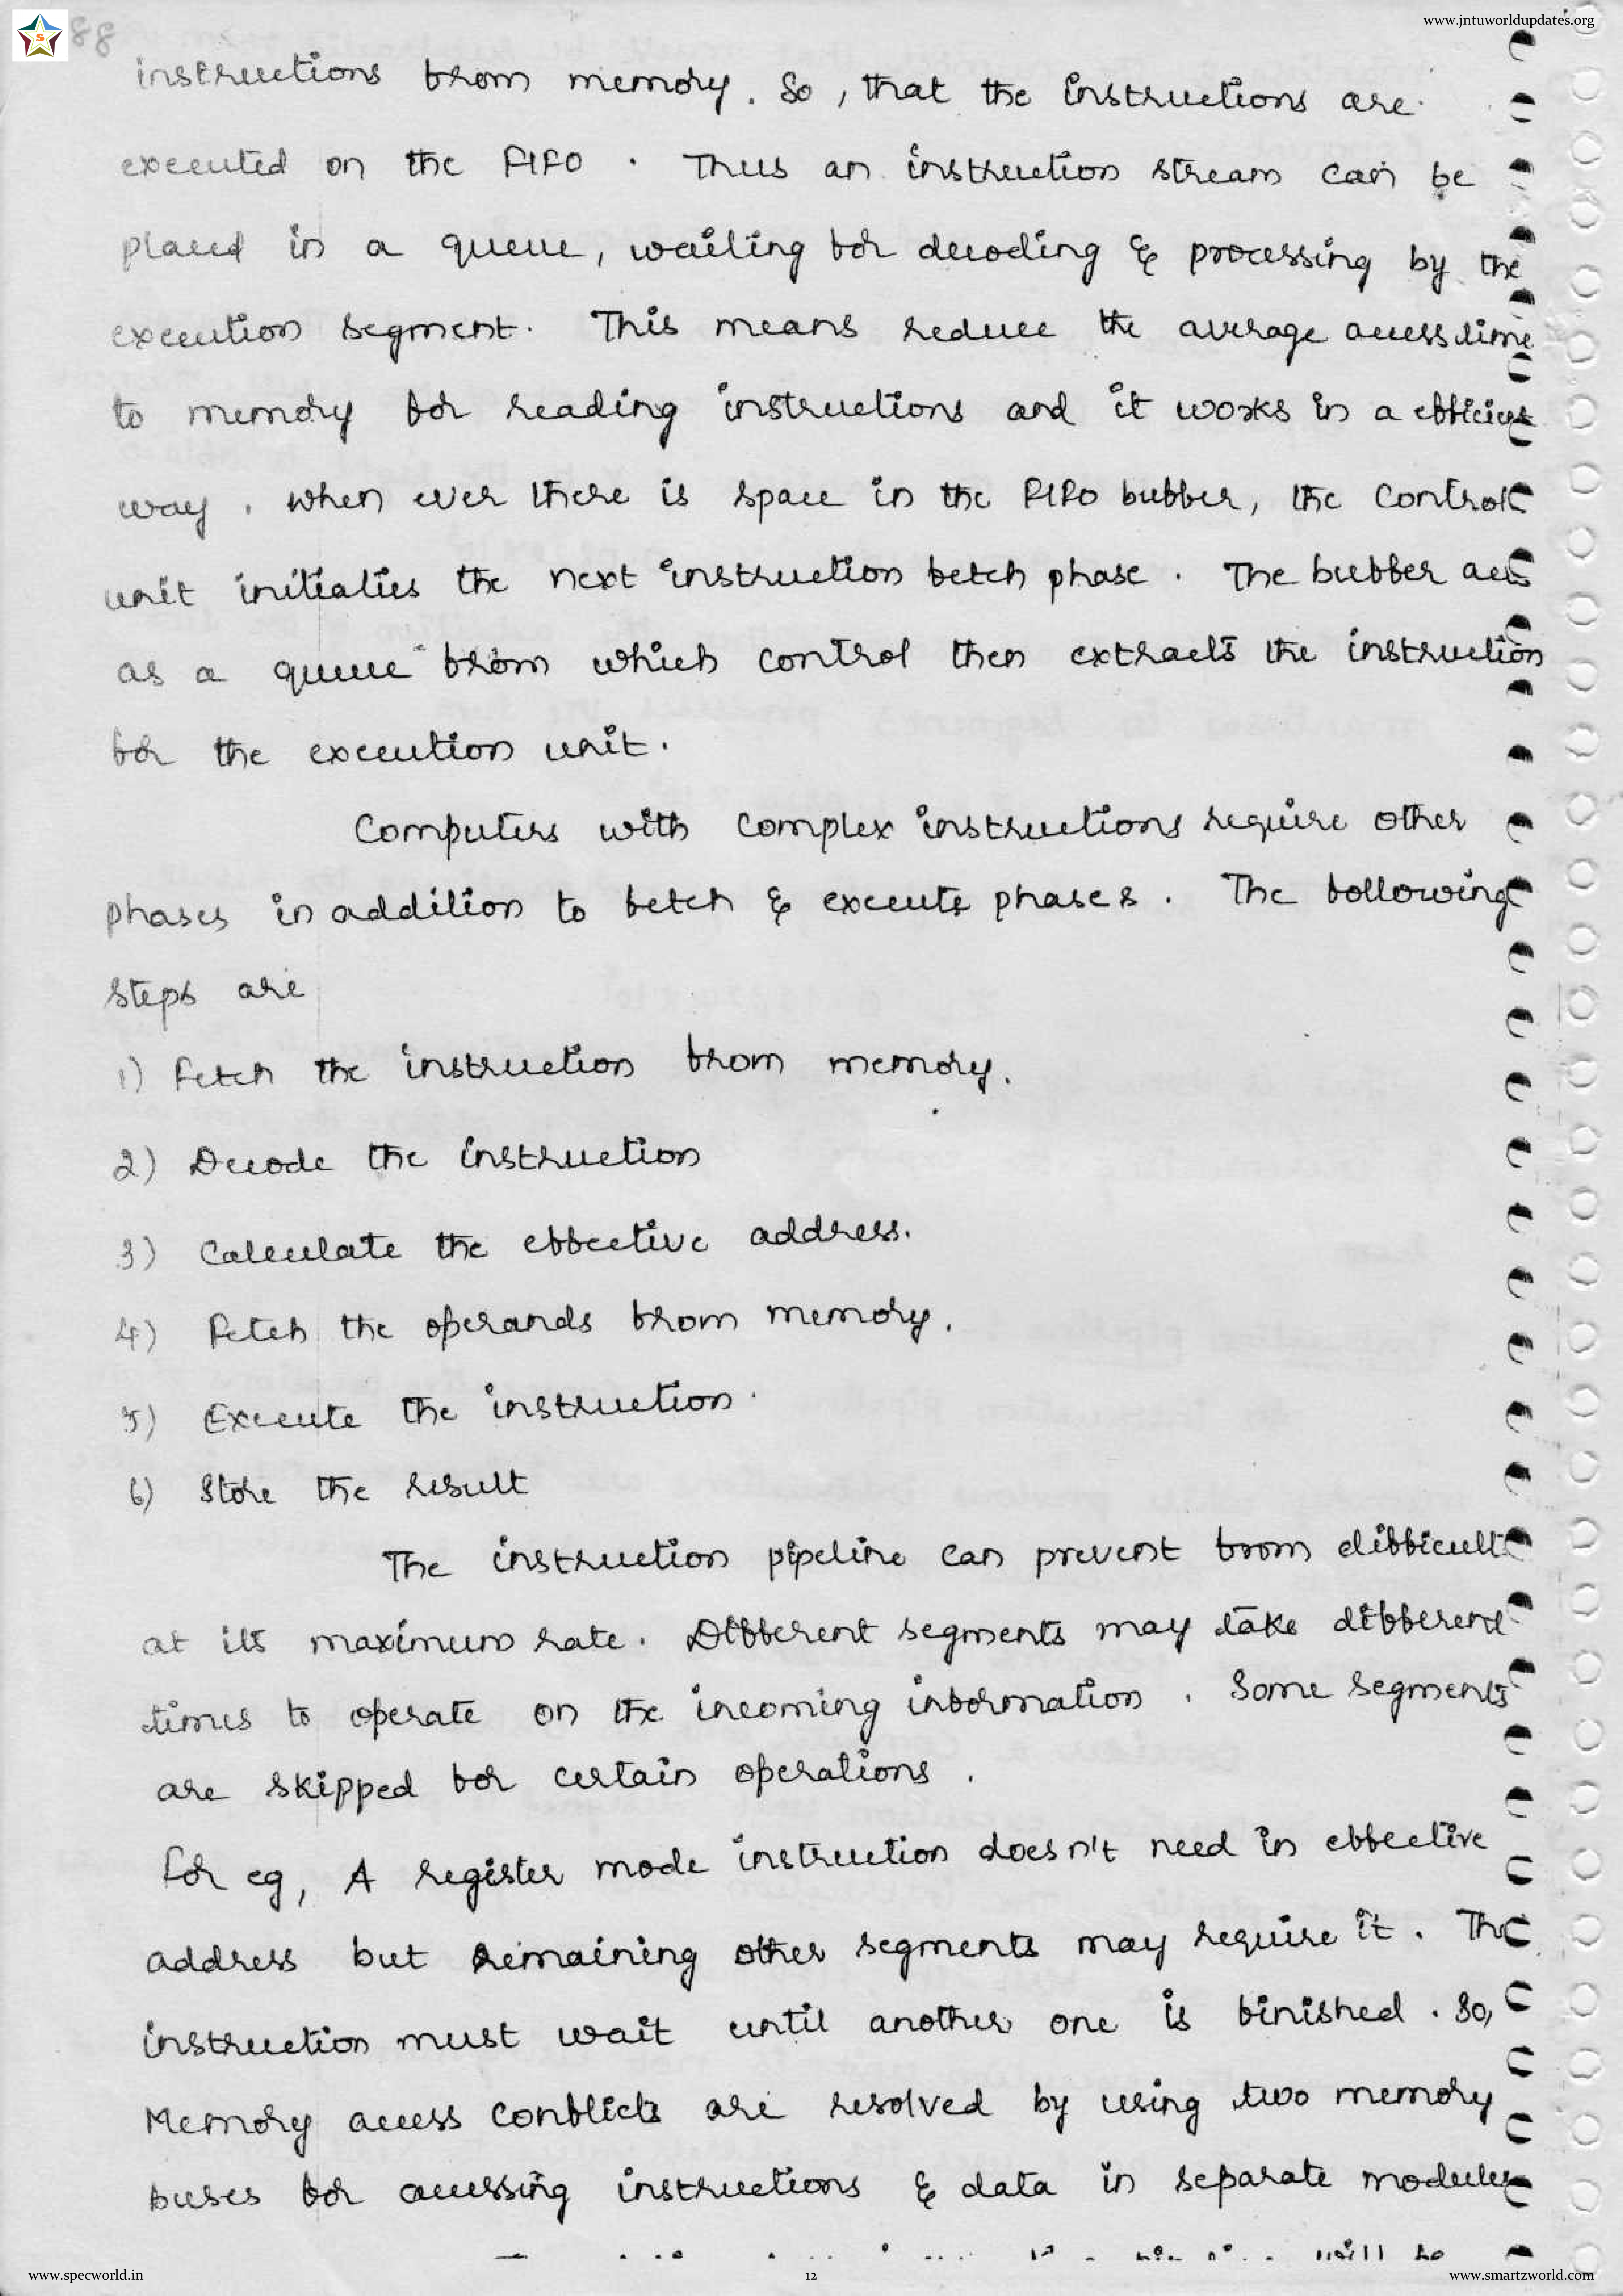 www.jntuworldupdates.org
S
88
instructions from memory. So, that the instructions are
executed on the FIFO. Thus an instruction stream can be
placed in a queue, waiting for decoding & processing by the
execution segment. This means reduce the average access time
to memory for reading instructions and it works in a efficient
way. When ever there is space in the FIFO buffer, the control
unit initiaties the next instruction fetch phase. The buffer acts
as a queue from which control then extracts the instruction
for the execution unit.
Computers with complex instructions require other
phases in addition to fetch & execute phases. The following
steps are
1) Fetch the instruction from memory.
2) Decode the instruction
3) Calculate the effective address.
4) Fetch the operands from memory.
5) Execute the instruction.
6) Store the result
The instruction pipeline can prevent from difficult
at its maximum rate. Different segments may take different
times to operate on the incoming information. Some segments
are skipped for certain operations.
For eg, A register mode instruction doesn't need in effective
address but remaining other segments may require it. The
instruction must wait until another one is finished. So,
Memory access conflicts are resolved by using two memory
buses for accessing instructions & data in separate modules
www.specworld.in
12
www.smartzworld.com